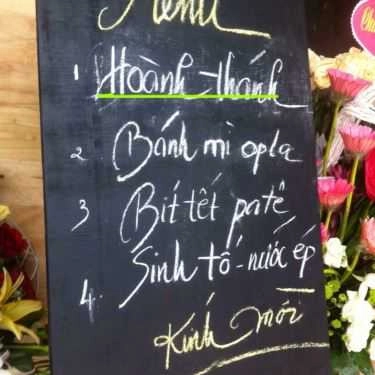 Menu
1 Hoành thánh
2 Bánh mì opla
3 Bít tết patê
4. Sinh tố - nước ép
Kính mời